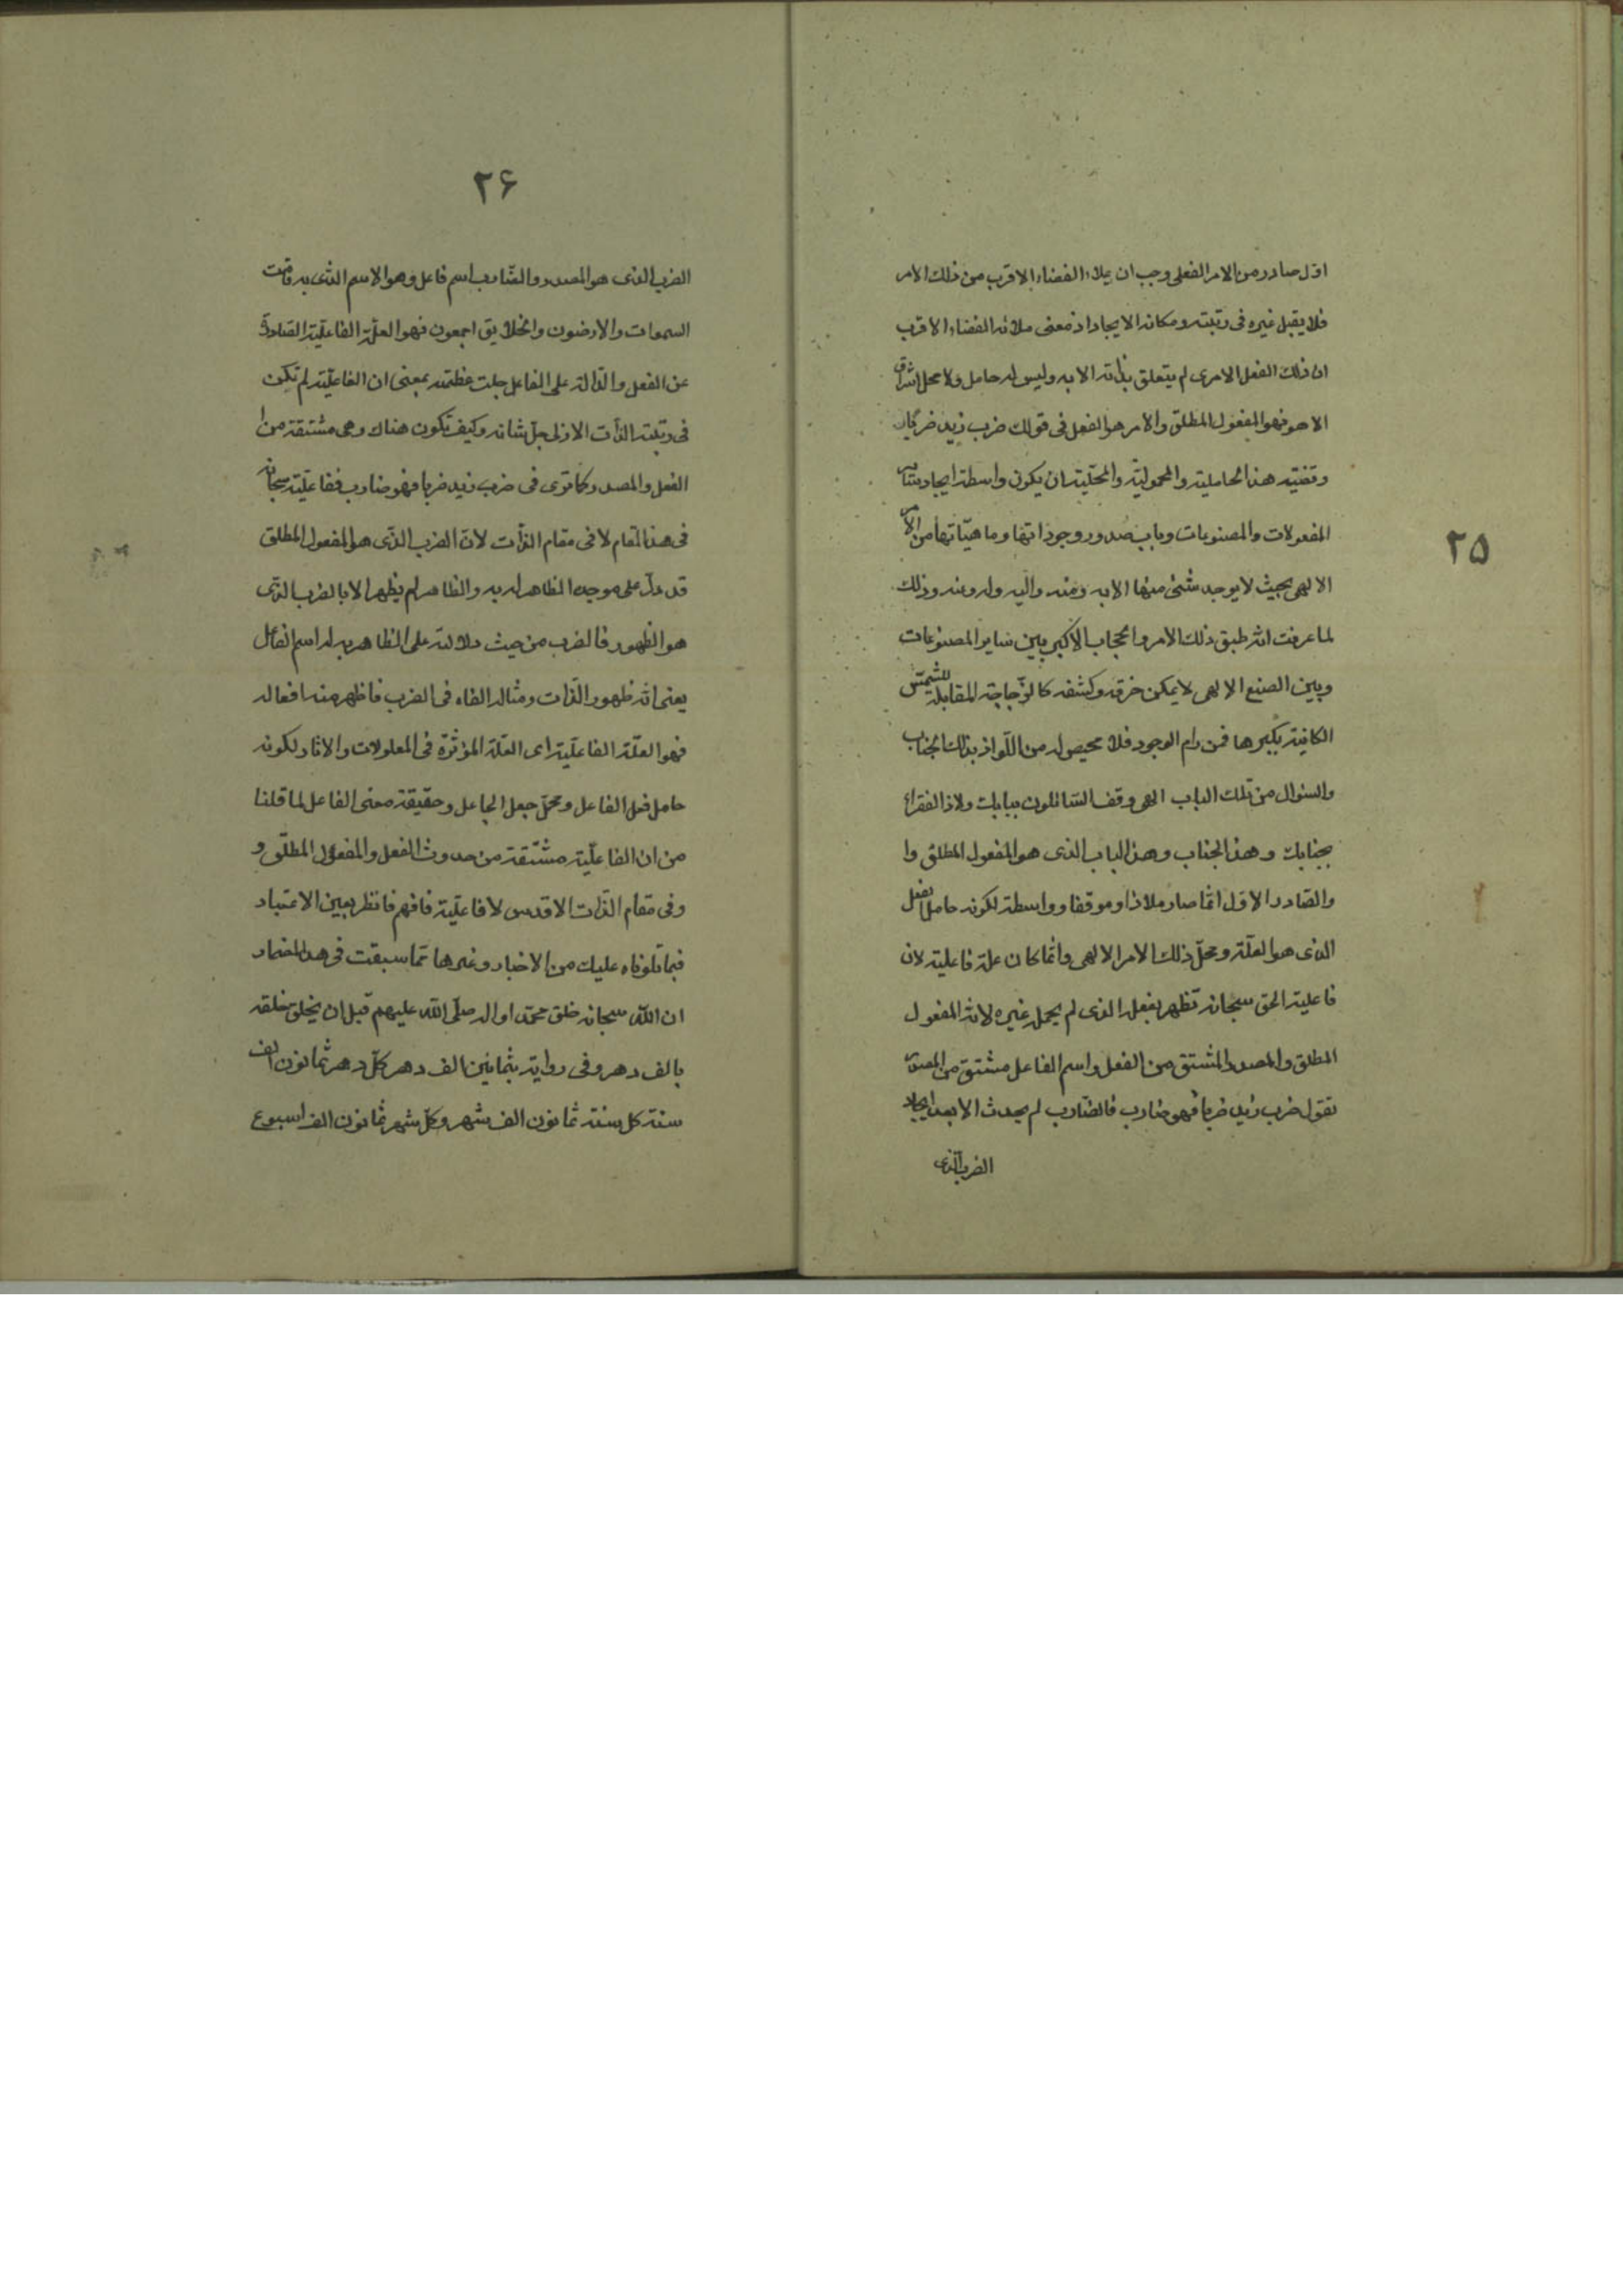 ٢٥
اوّل صادر من الامر الفعلى وجب ان يملاء الفضاء الاقرب من ذلك الامر
فلا يقبل غيره فى رتبته ومكانه الايجاد اذ معنى ملائه الفضاء الاقرب
ان ذلك الفعل الامرى لم يتعلق بذاته الا به وليس له حامل ولا محل اشراق
الا هو فهو المفعول المطلق والامر هو الفعل فى قولك ضرب زيد ضرباً
وقضيّة هذا الحاملية والمحمولية والمحلّية ان يكون واسطة ايجاد ساير
المفعولات والمصنوعات وباب صدور وجوداتها وماهيّاتها من الامر
الالهى بحيث لا يوجد شئى منها الا به ومنه واليه وله وعنه وذلك
لما عرفت انّه طبق ذلك الامر والحجاب الاكبر بين ساير المصنوعات
وبين الصنع الالهى لا يمكن خرقه وكشفه كالزّجاجة المقابلة للشمس
الكافية بكبرها فمن رام الوجود فلا محيص له من اللّواذ بذلك الجناب
والسئوال من تلك الباب الهى وقف السّائلون ببابك ولاذ الفقراء
بجنابك وهذا الجناب وهذا الباب الذى هو المفعول المطلق وا
والصّادر الاوّل انّما صار ملاذا وموقفا وواسطة لكونه حاملا لفعل
الذى هو العلّة ومحلّ ذلك الامر الالهى وانّما كان علة فاعلية لان
فاعلية الحق سبحانه تظهر بفعله الذى لم يحمل غيره لانّه المفعول
المطلق والمصدر المشتق من الفعل واسم الفاعل مشتق من المصدر
تقول ضرب زيد ضربا فهو ضارب فالضّارب لم يحدث الا بعد ايجاد
الضرب الّذى
٢۶
الضرب الذى هو المصدر والضّارب اسم فاعل وهو الاسم الذى به قامت
السموات والارضون والخلايق اجمعون فهو العلّة الفاعليّة الصّادرة
عن الفعل والدّالة على الفاعل جلت عظمته بمعنى ان الفاعليّة لم تكن
فى رتبة الذّات الازلى جلّ شانه وكيف تكون هناك وهى مشتقة من ا
الفعل والمصدر كما ترى فى ضرب زيد ضربا فهو ضارب ففاعليّته سبحانه
فى هذا المقام لا فى مقام الذّات لانّ الضرب الذّى هو المفعول المطلق
قد دلّ على موجده الظاهر له به والظاهر لم يظهر الا بالضرب الذّى
هو الظهور فالضرب من حيث دلالته على الظاهر به له اسم الفاعل
يعنى انّه ظهور الذّات ومثاله القاه فى الضرب فاظهر منه افعاله
فهو العلّة الفاعليّة اى العلّة المؤثرّة فى المعلولات والاثار لكونه
حامل فعل الفاعل ومحلّ جعل الجاعل وحقيقة معنى الفاعل لما قلنا
من ان الفاعليّة مشتقة من حدوث الفعل والمفعول المطلق و
وفى مقام الذّات الاقدس لا فاعليّة فافهم فانظر بعين الاعتبار
فيما تلوناه عليك من الاخبار وغيرها ممّا سبقت فى هذا المضمار
ان اللّه سبحانه خلق محمّدا واله صلّى اللّه عليهم قبل ان يخلق خلقه
بالف دهر وفى رواية بثمانين الف دهر كلّ دهر ثمانون الف
سنة كل سنة ثمانون الف شهر وكلّ شهر ثمانون الف اسبوع